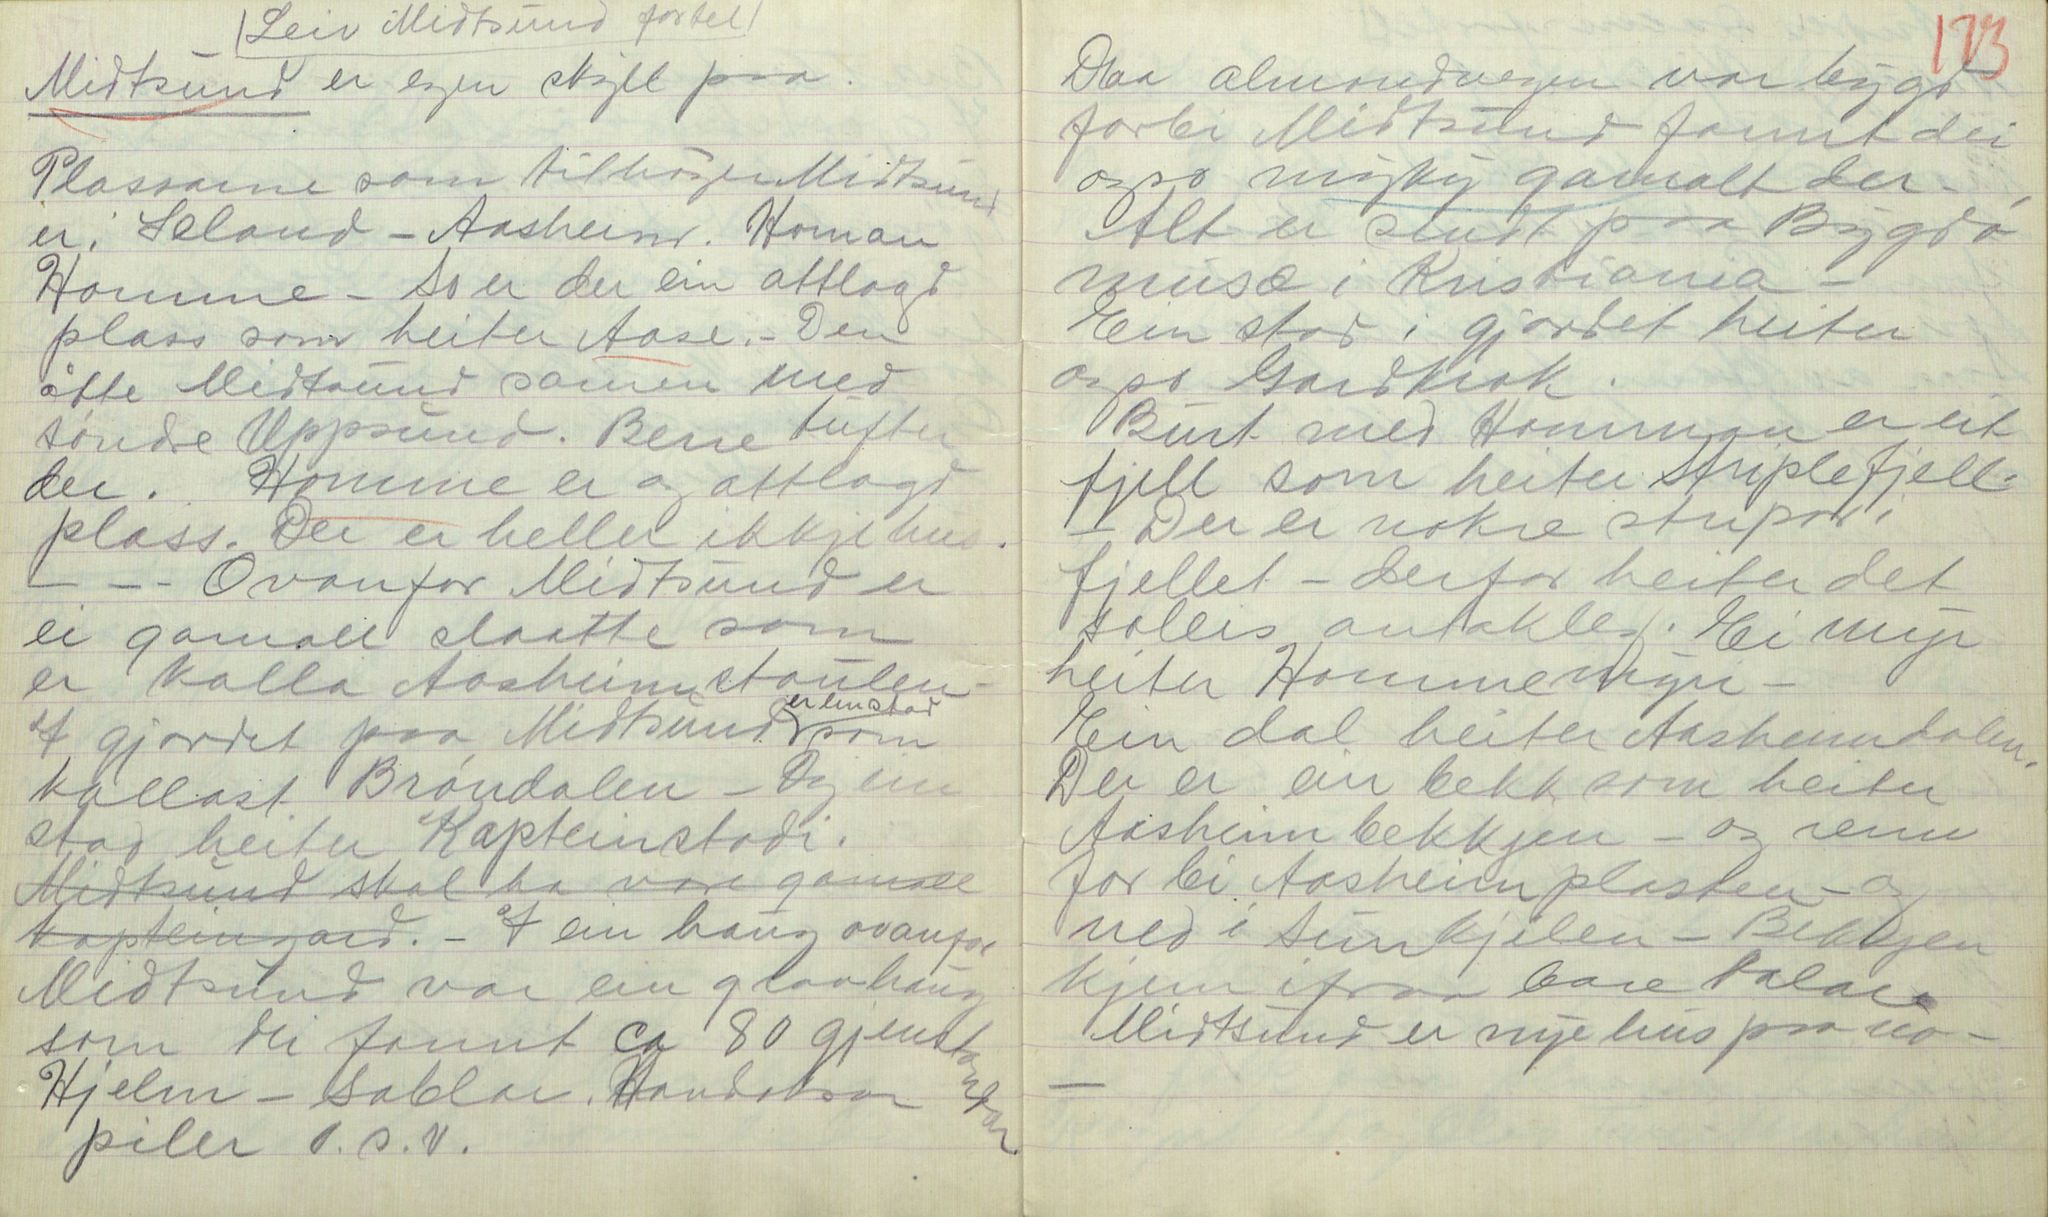 (Leiv Midtsund fortel)
Midtsund er egen skyll paa.
Plassarne som tilhøyer Midtsund
er: Seland - Aasheim. Homan
Homme - So er der ein attlagd
plass som heiter Aase. - Den
åtte Midtsund samen med
søndre Uppsund. Berre tufter
der. Homme er og attlagd
plass. Der er heller ikkje hus.
- - - Ovanfor Midtsund er
ei gamall slaatte som
er kalla Aasheimstaulen -
I gjordet paa Midtsund er ein stad som
kallast Brøndalen - Og ein
stad heiter Kapteinstadi.
Midtsund skal ha vore gamall
kapteingard. - I ein haug ovanfor
Midtsund var ein gravhaug
som dei fannt ca 80 gjenstandar.
Hjelm - Sablar. Handaksar
piler o.s.v.
173
Daa almandvegen var bygd
forbi Midtsund fannt dei
ogso mykji gamalt der -
Alt er sendt paa Bygdø
muse i Kristiania -
Ein stad i gjordet heiter
ogso Gardkrok.
Burt med Homman er eit
fjell som heiter Striplefjell.
- Der er nokre stripor i
fjellet - derfor heiter det
solleis antakleg. Ei myr
heiter Hommemyri -
Ein dal heiter Aasheimdalen.
Der er ein bekk som heiter
Aasheimbekkjen - og renn
forbi Aasheimplassen - og
ned i Sunkjelen - Bekkjen
kjem ifraa bare Dalar
Midtsund er nye hus paa no -
-